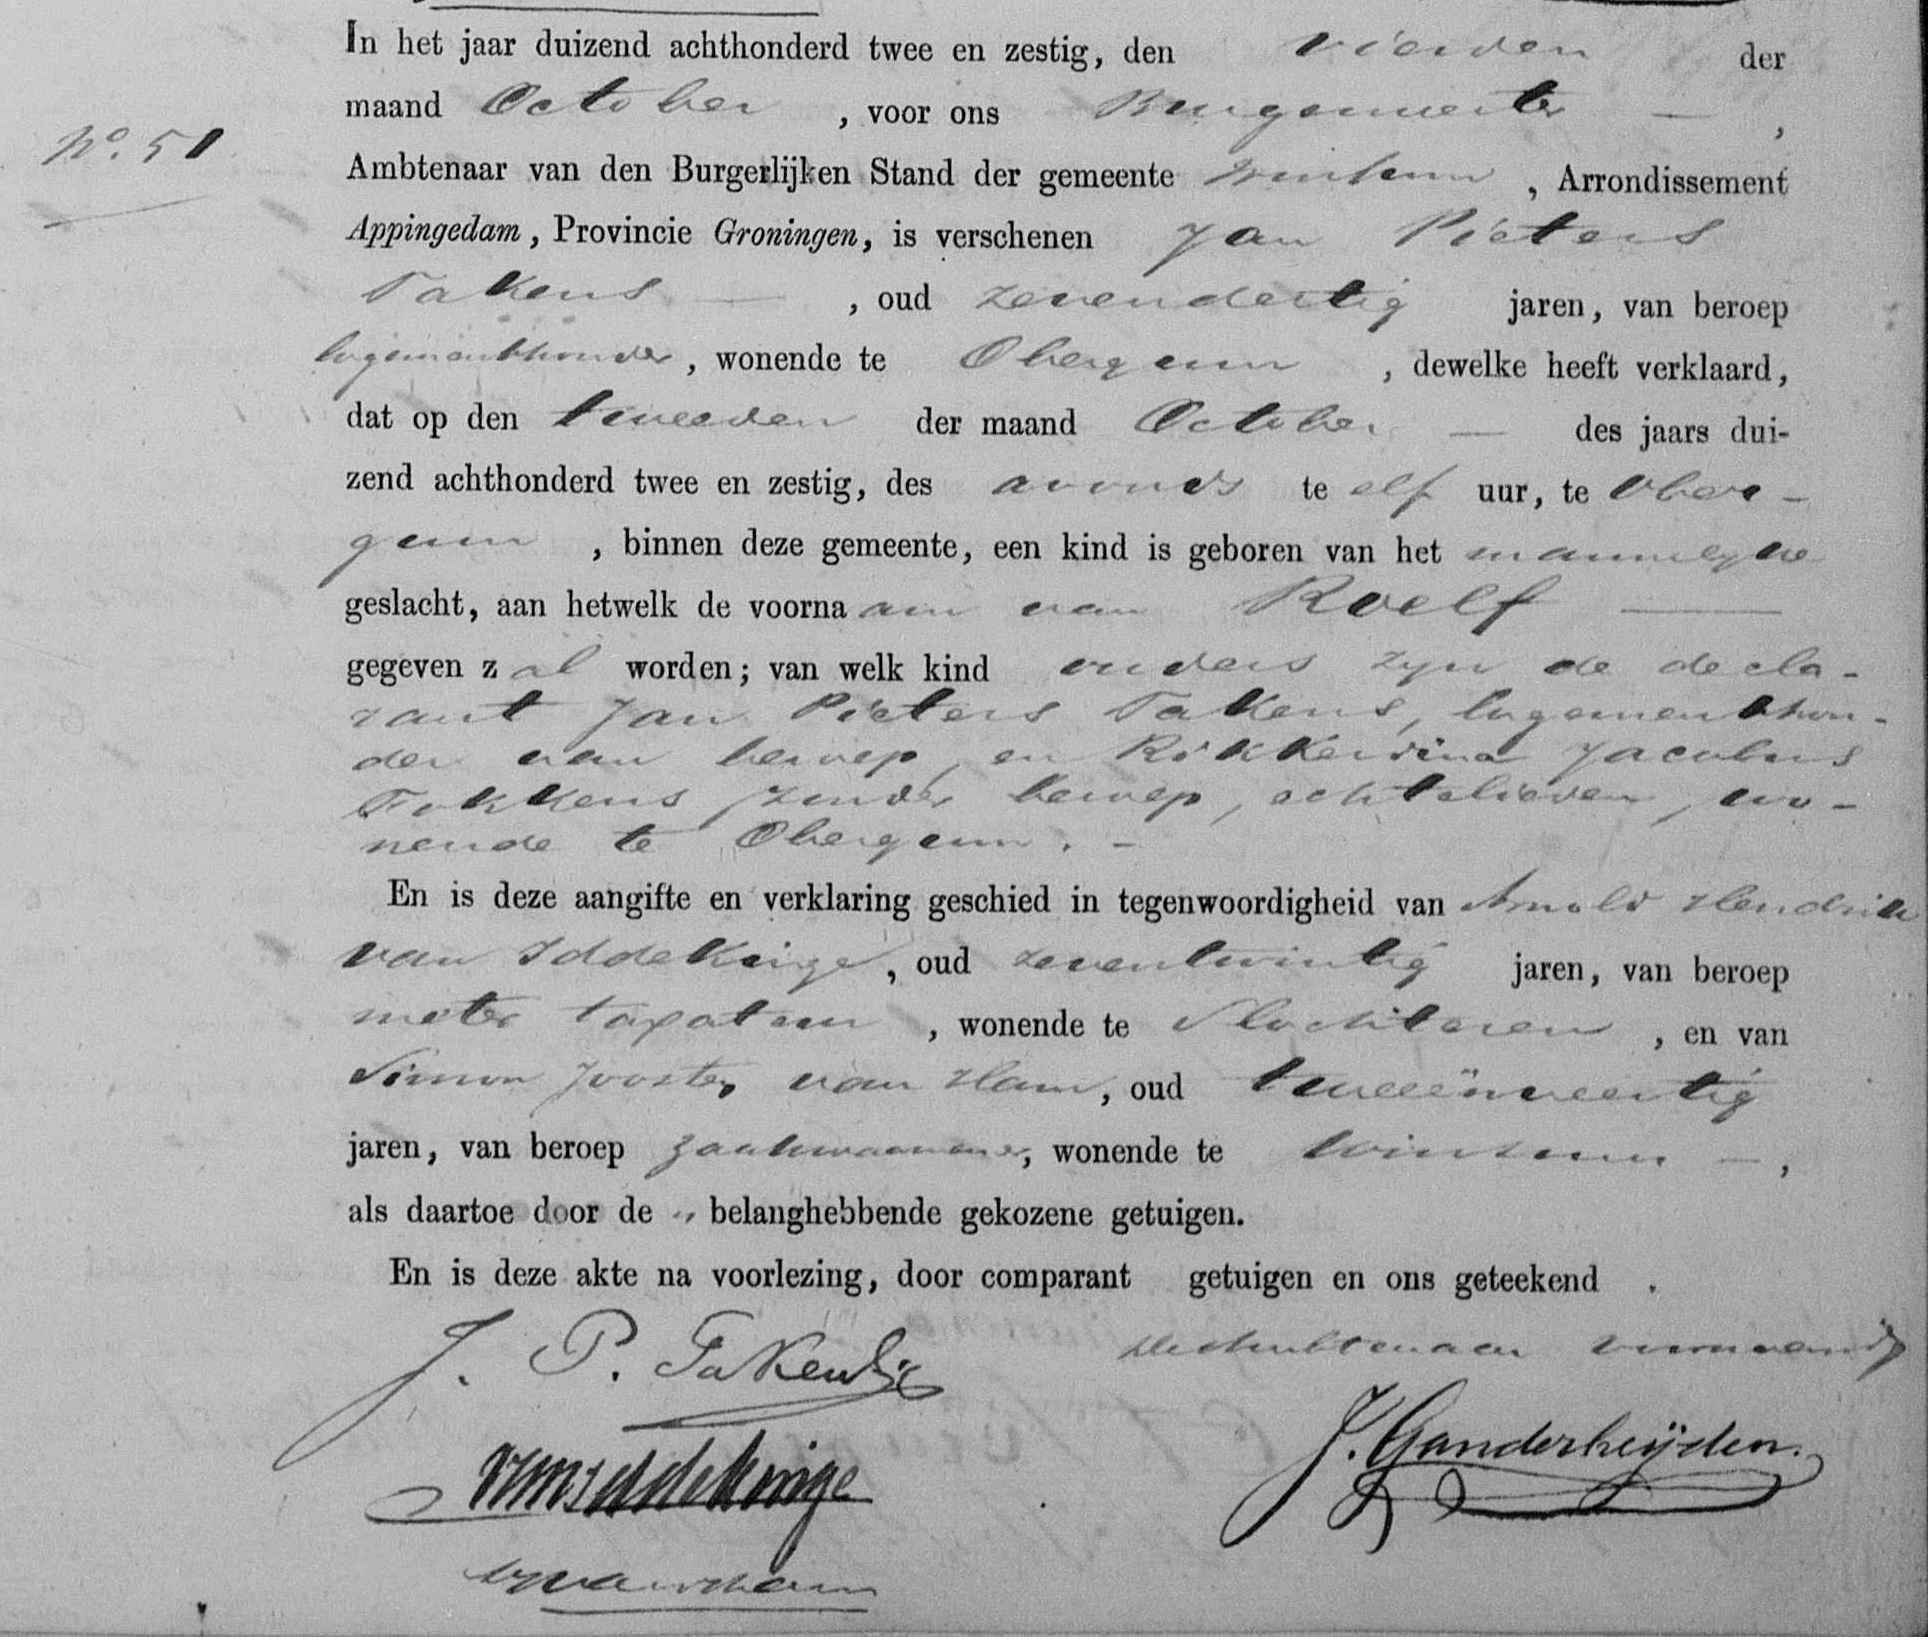 In het jaar duizend achthonderd twee en zestig, den vierden der
maand October, voor ons Burgemeester —,
No. 51
Ambtenaar van den Burgerlijken Stand der gemeente Winsum, Arrondissement
Appingedam, Provincie Groningen, is verschenen Jan Pieters
Takens —, oud zevendertig jaren, van beroep
logementhouder, wonende te Obergum, dewelke heeft verklaard,
dat op den tweeden der maand October — des jaars dui-
zend achthonderd twee en zestig, des avonds te elf uur, te Ober-
gum, binnen deze gemeente, een kind is geboren van het mannelyke
geslacht, aan hetwelk de voornaam van Roelf —
gegeven zal worden; van welk kind ouders zyn de decla-
rant Jan Pieters Takens, logementhou-
der van beroep, en Rikkerdina Jacobus
Fokkens zonder beroep, echtelieden, wo-
nende te Obergum. -
En is deze aangifte en verklaring geschied in tegenwoordigheid van Arnold Hendrik
van Iddekinge, oud zeventwintig jaren, van beroep
meter taxateur, wonende te Slochteren, en van
Simon Jooster van Ham, oud tweeënveertig
jaren, van beroep zaakwaarnemer, wonende te Winsum —,
als daartoe door de " belanghebbende gekozene getuigen.
En is deze akte na voorlezing, door comparant getuigen en ons geteekend.
J. P. Takens
van Iddekinge
J. Ganderheijden.
van Ham